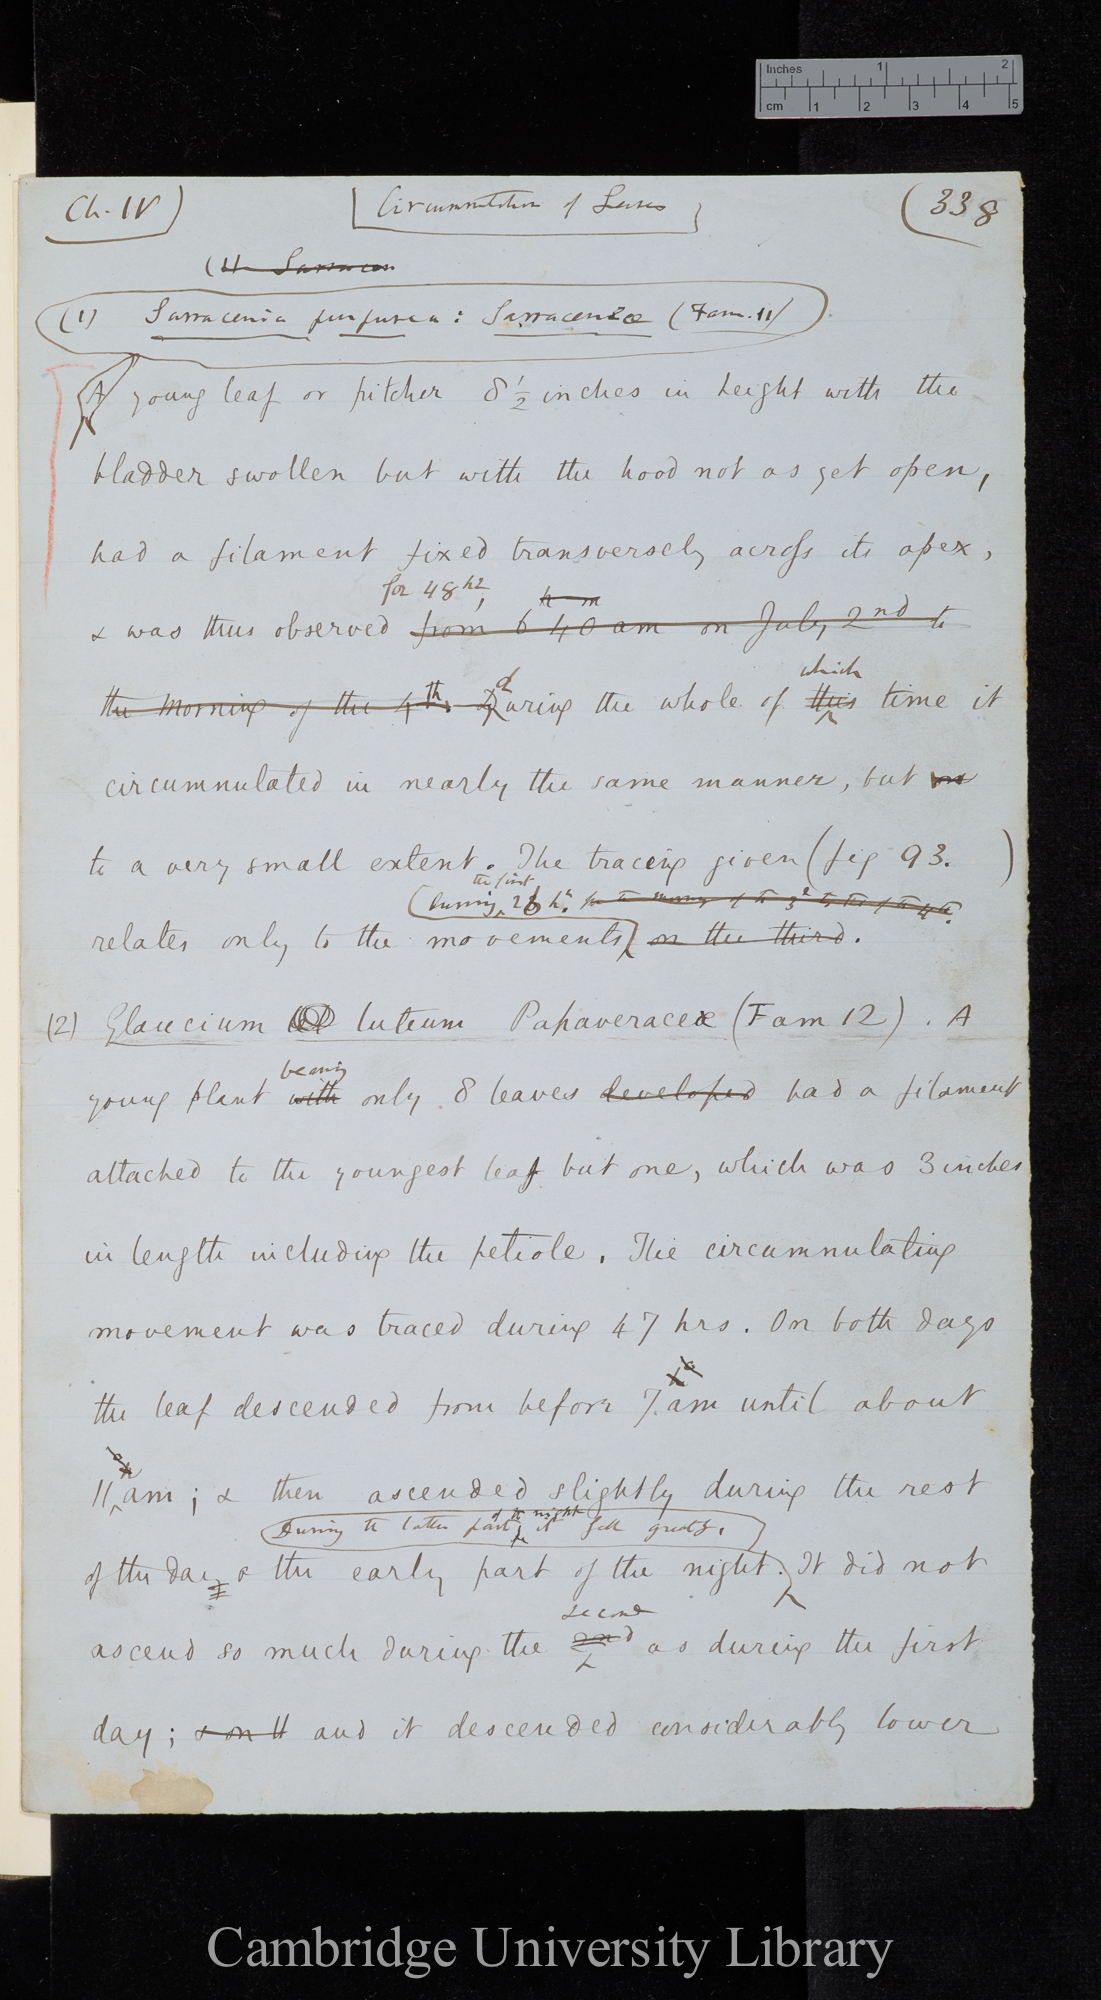 Inches 1 2
cm 1 2 3 4 5
Ch. IV) [Circumnutation of Leaves] (338
(11 Sarracen
(1) Sarracenia purpurea: Sarraceniæ (Fam. 11)
A young leaf or pitcher 8 1/2 inches in height with the
bladder swollen but with the hood not as yet open,
had a filament fixed transversely across its apex,
for 48 hrs, h m
& was thus observed from 6 40 am on July 2nd to
d which
the morning of the 4th. During the whole of this time it
circumnutated in nearly the same manner, but
to a very small extent. The tracing given (fig 93. )
the first
(during 26 hrs.
relates only to the movements) on the third.
(2) Glaucium luteum Papaveraceæ (Fam 12). A
bearing
young plant with only 8 leaves developed had a filament
attached to the youngest leaf but one, which was 3 inches
in length including the petiole. The circumnutating
movement was traced during 47 hrs. On both days
the leaf descended from before 7 am until about
11 am; & then ascended slightly during the rest
of the night
During the latter part it fell greatly.
of the day & the early part of the night. It did not
second
ascend so much during the 2nd as during the first
day; & on 11 and it descended considerably lower
Cambridge University Library